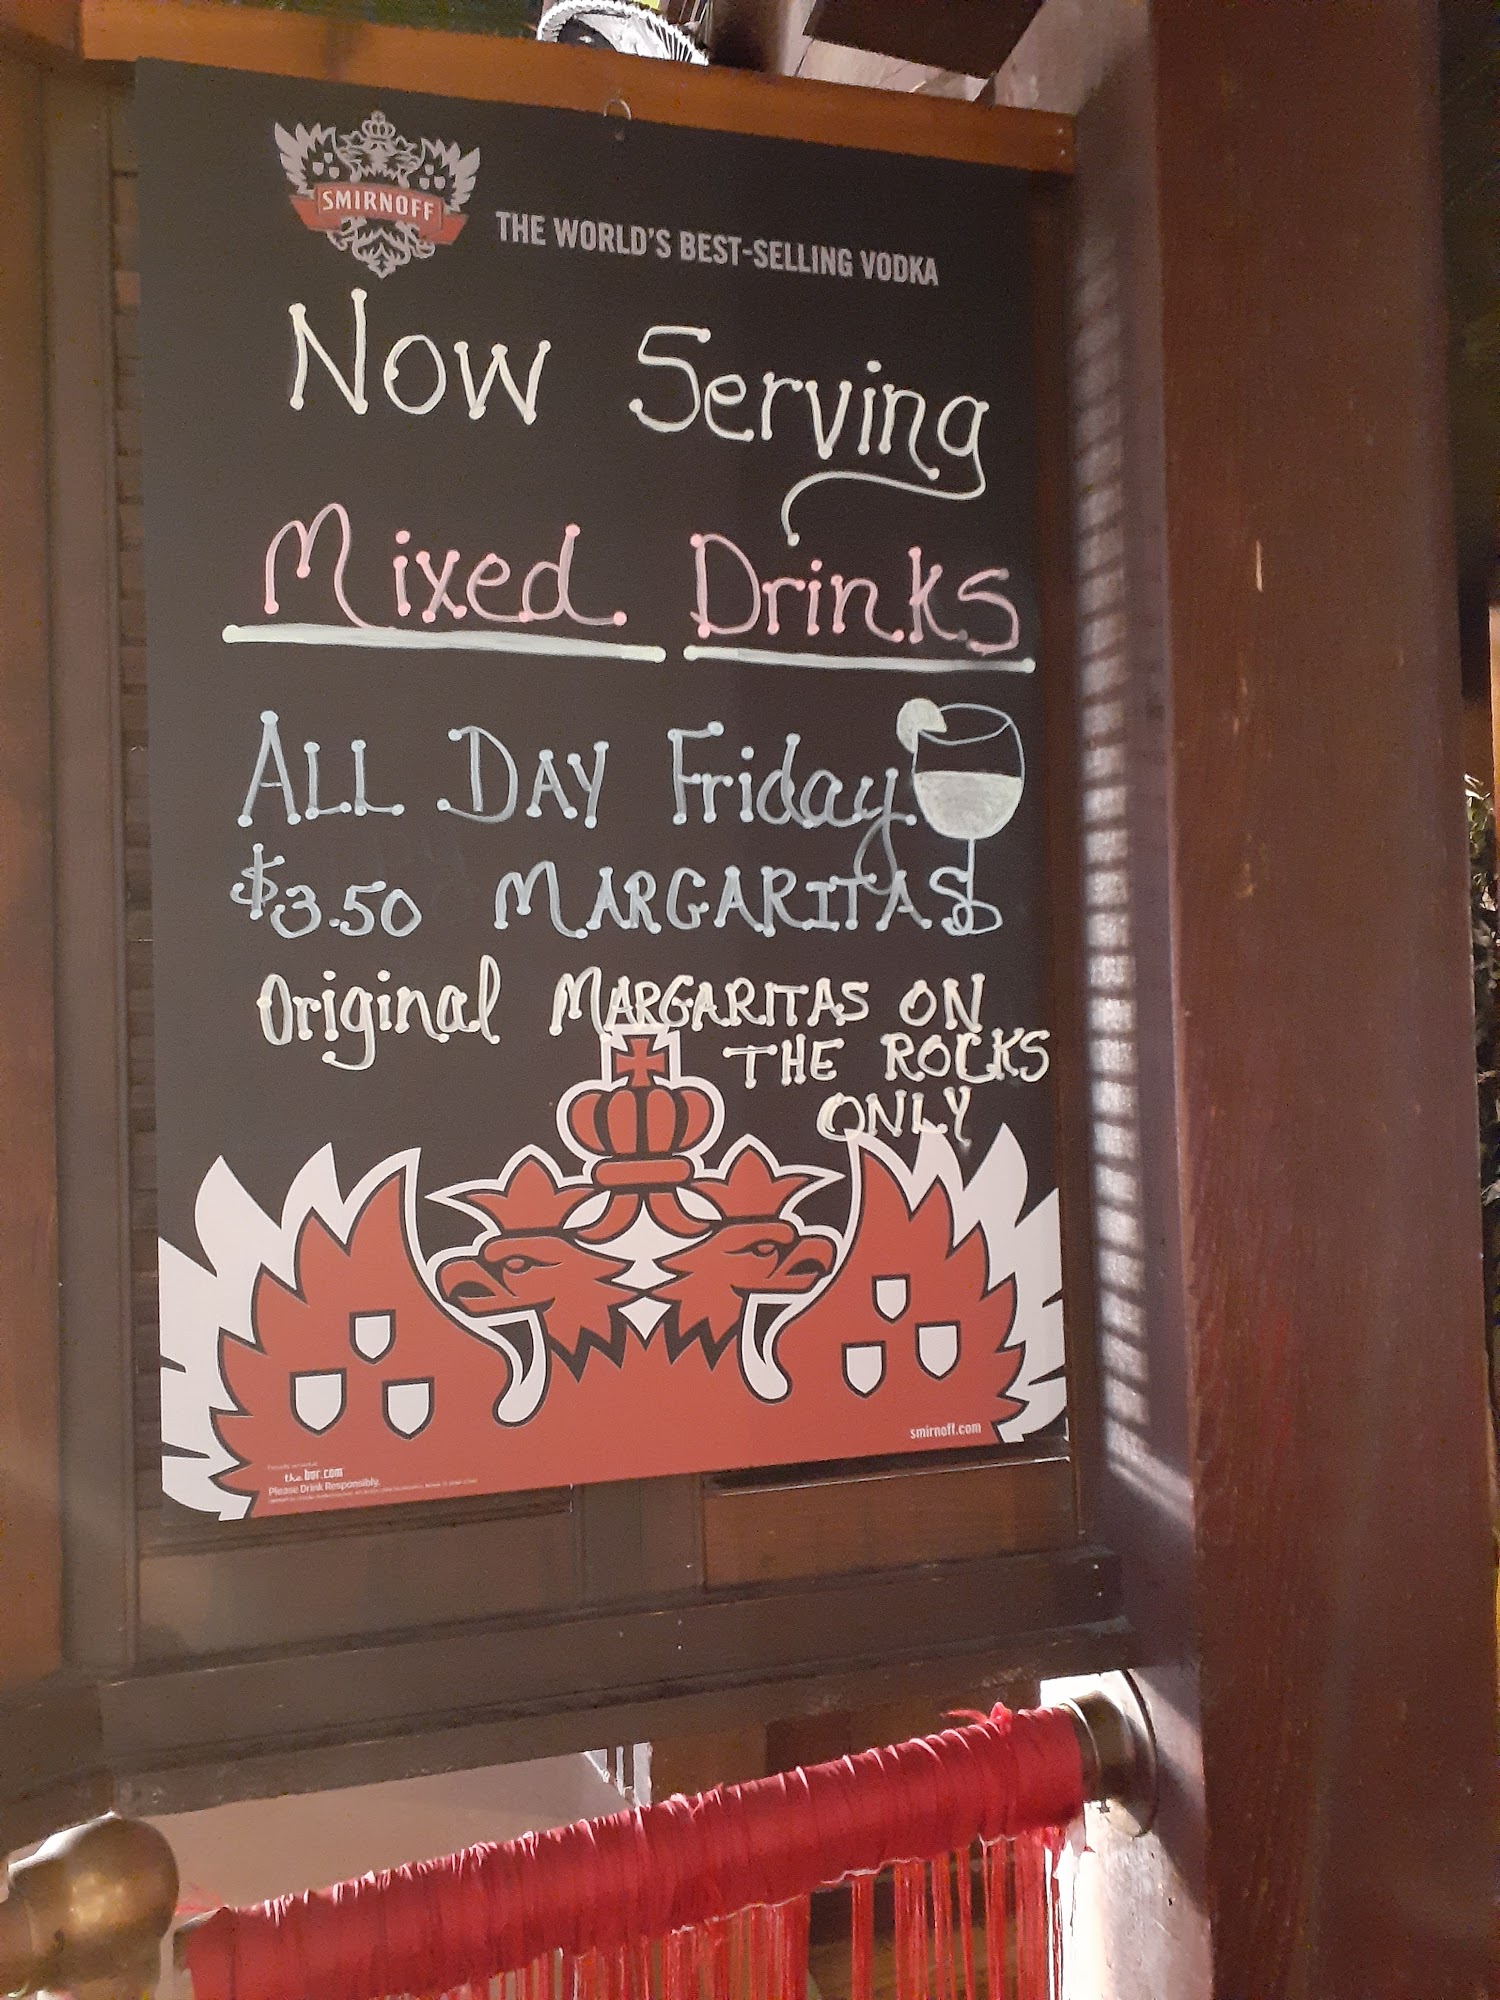 SMIRNOFF
THE WORLD'S BEST-SELLING VODKA
Now Serving
Mixed Drinks
ALL DAY Friday
$3.50 MARGARITAS
Original MARGARITAS ON
THE ROCKS
ONLY
smirnoff.com
the bar.com
Please Drink Responsibly.